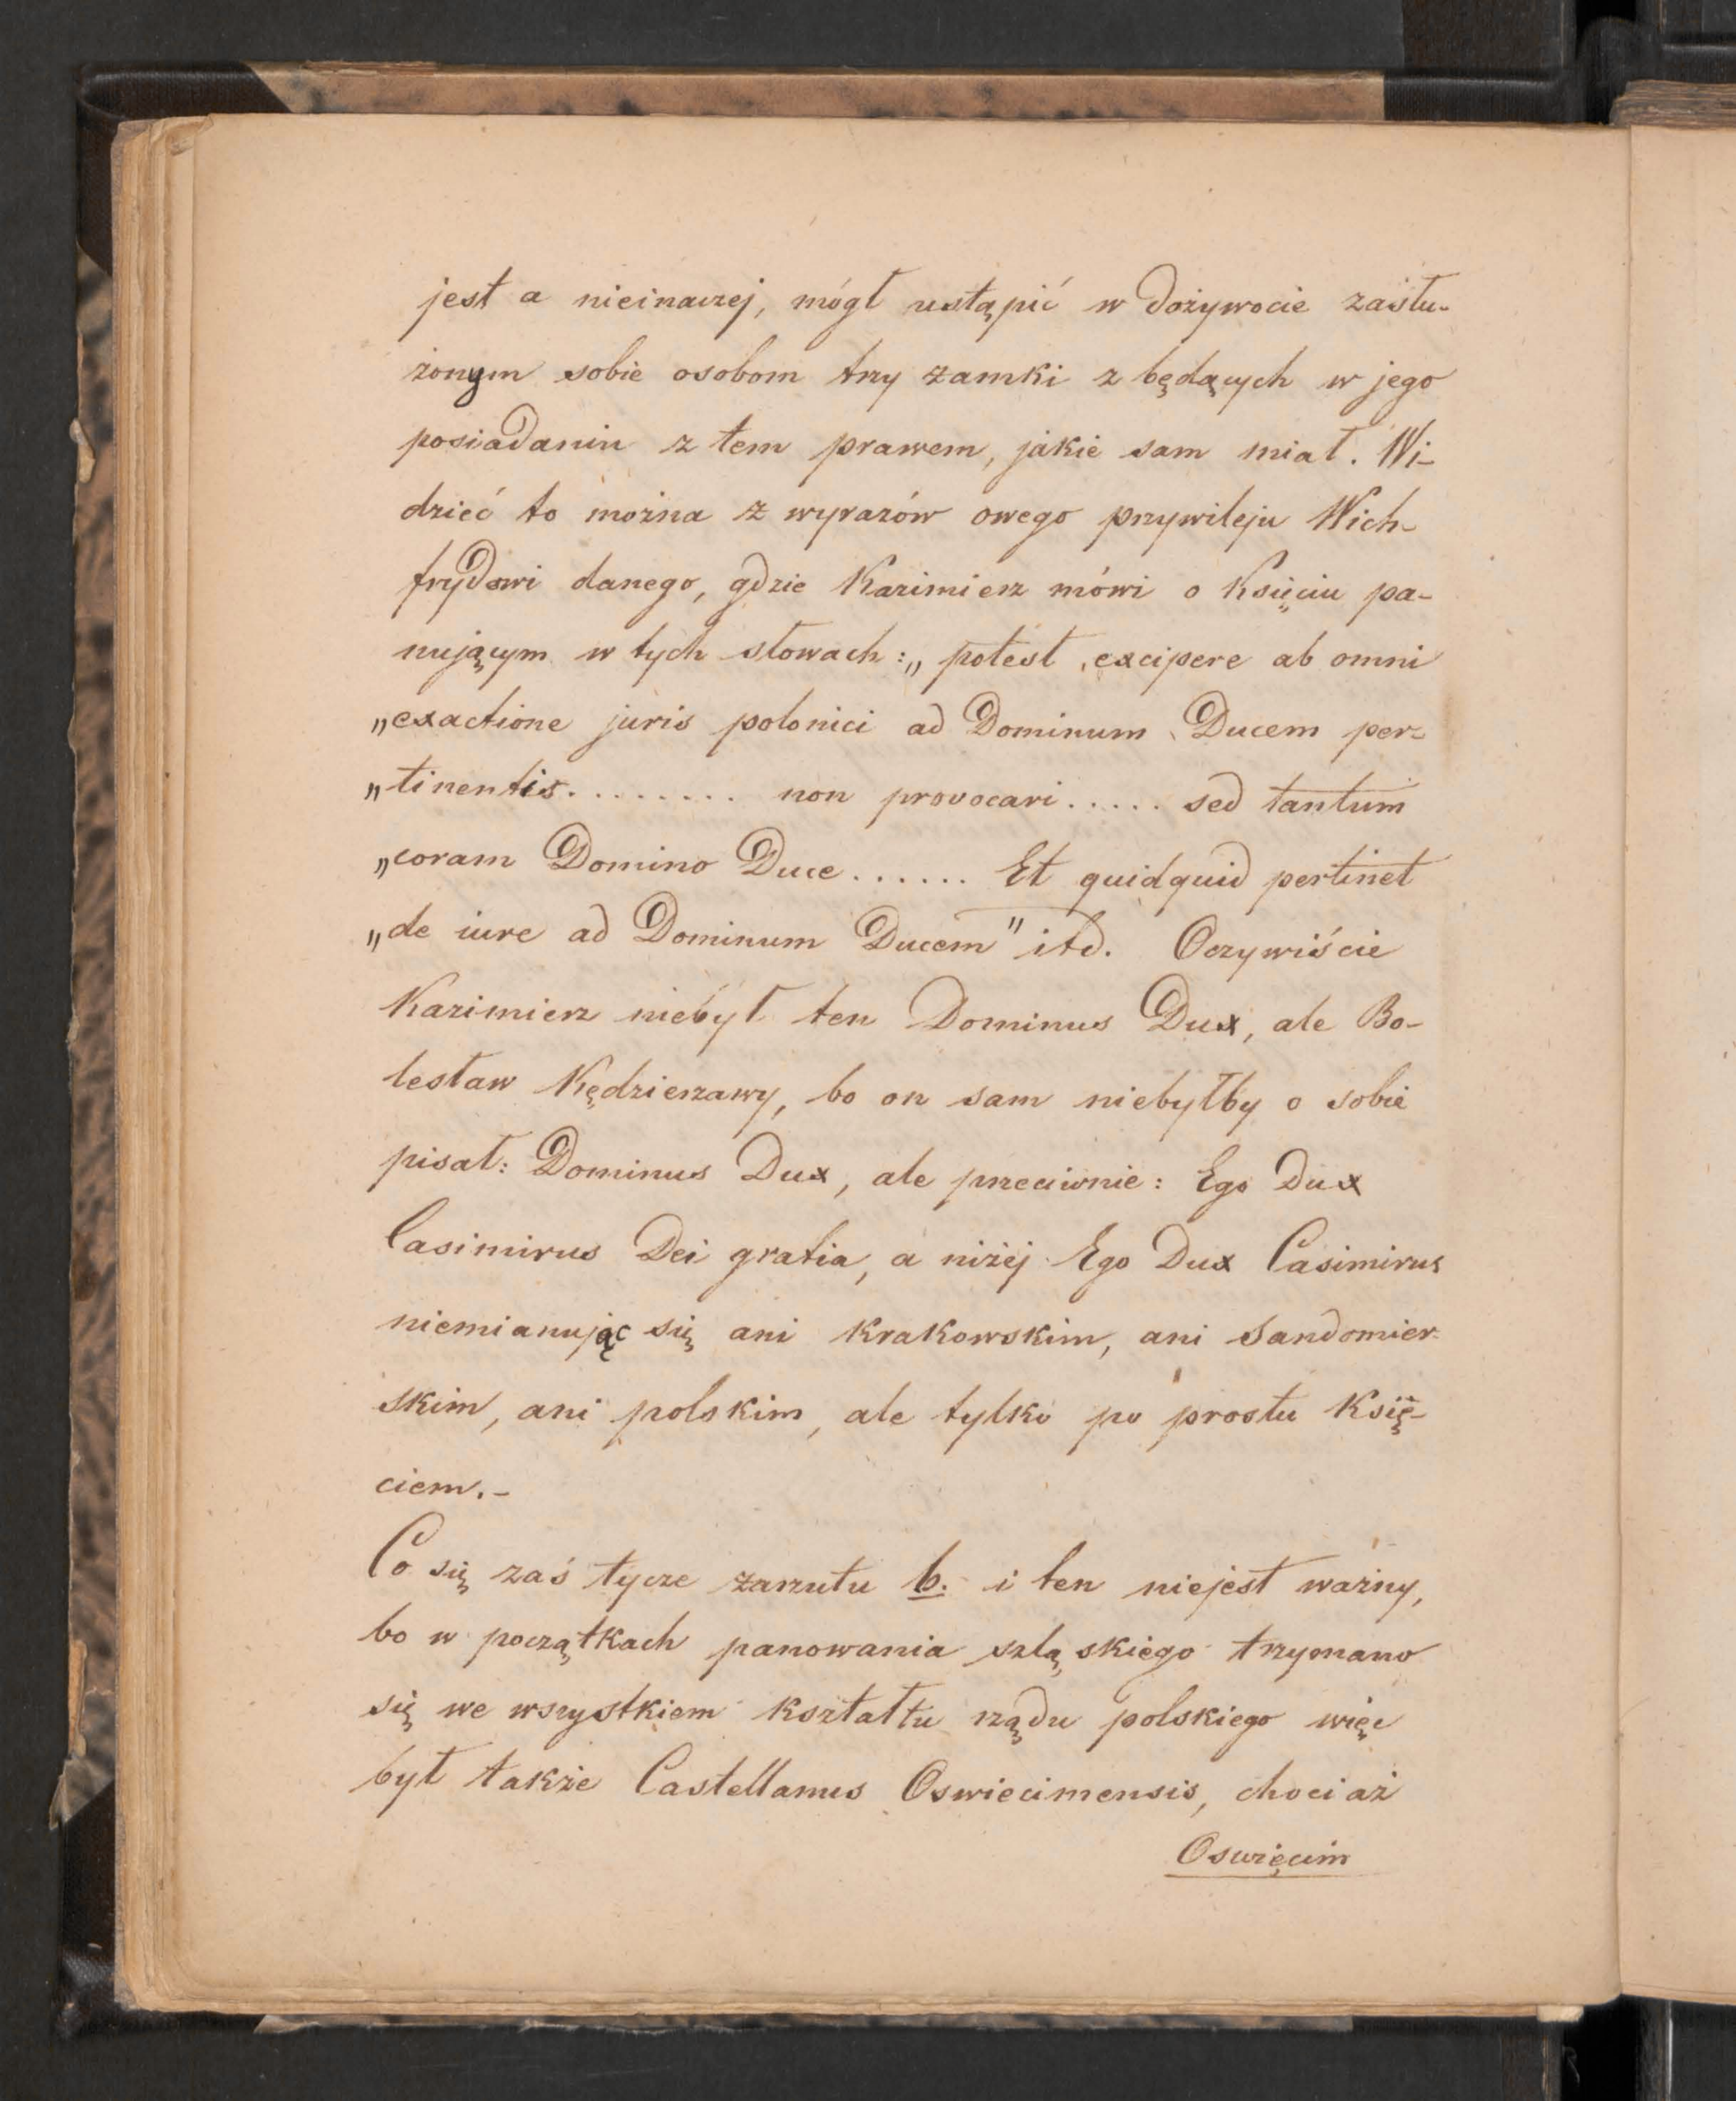 jest a nieinaczej, mógł ustąpić w dożywocie zasłu-
żonym sobie osobom trzy zamki z będących w jego
posiadaniu z tem prawem, jakie sam miał. Wi-
dzieć to można z wyrazów owego przywileju Wich-
frydowi danego, gdzie Kazimierz mówi o Księciu pa-
nującym w tych słowach: „potest excipere ab omni
„exactione juris polonici ad Dominum Ducem per-
„tinentis......... non provocari..... sed tantum
„coram Domino Duce...... Et quidquid pertinet
„de iure ad Dominum Ducem" itd. Oczywiście
Kazimierz niebył ten Dominus Dux, ale Bo-
lesław Kędzierzawy, bo on sam niebyłby o sobie
pisał: Dominus Dux, ale przeciwnie: Ego Dux
Casimirus Dei gratia, a niżej Ego Dux Casimirus
niemianując się ani Krakowskim, ani Sandomier-
skim, ani polskim, ale tylko po prostu Księ-
ciem.-
Co się zaś tycze zarzutu b. i ten niejest ważny,
bo w początkach panowania szląskiego trzymano
się we wszystkiem kształtu rządu polskiego więc
był także Castellanus Oswiecimensis, chociaż
Oswięcim